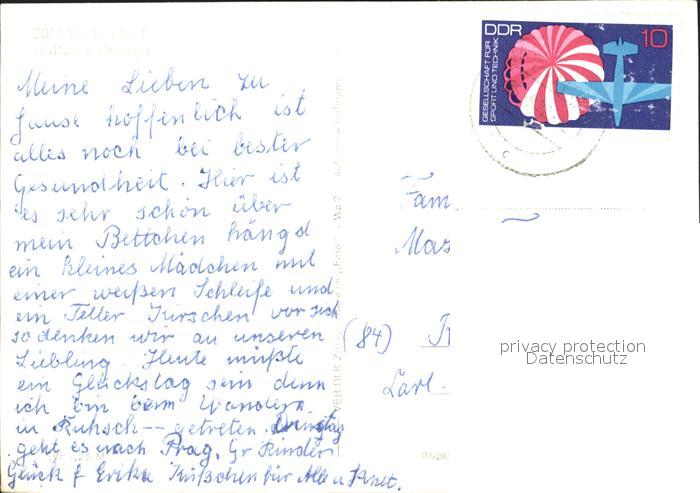 DDR 10
GESELLSCHAFT FÜR
SPORT UND TECHNIK
Meine Lieben zu
Hause hoffentlich ist
alles noch bei bester
Gesundheit. Hier ist
es sehr schön über
mein Bettchen hängd
ein kleines Mädchen mit
einer weißen Schleife und
ein Teller Kirschen vor sich
so denken wir an unseren
Liebling. Heute müßte
ein Glückstag sein denn
ich bin beim Wandern
in Kuhsch-- getreten.
geht es nach Prag. Gr Kinder
Glück f Erika Küßchen für Alle u
Fam.
(84)
Carl
privacy protection
Datenschutz